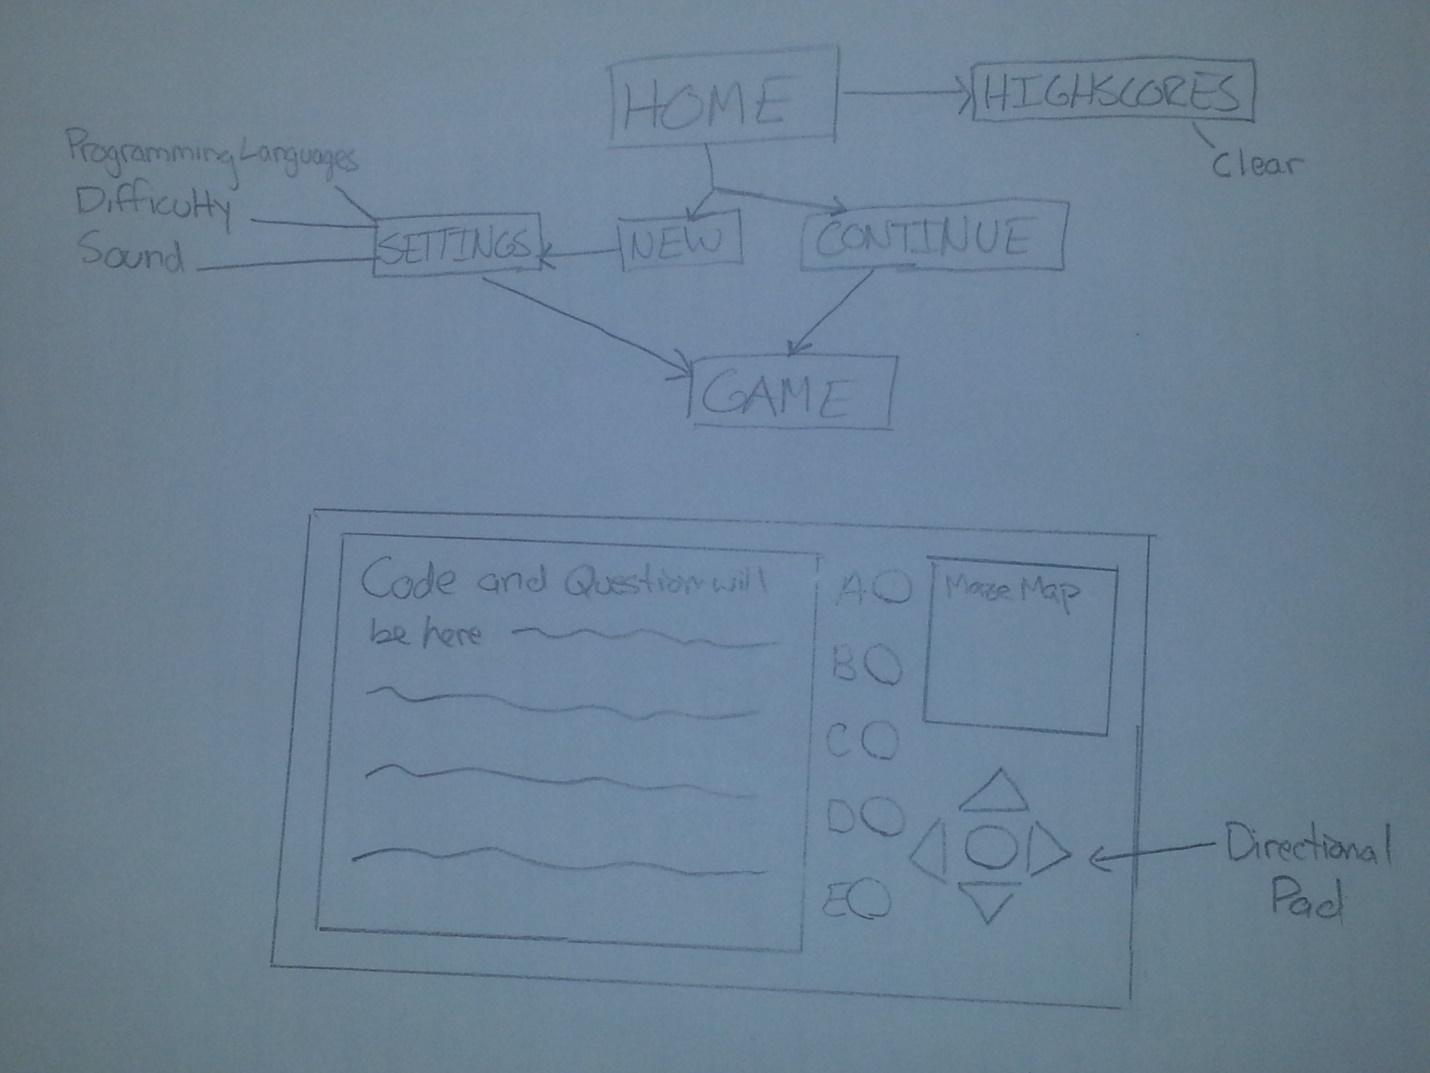 HOME
HIGHSCORES
Clear
Programming Languages
Difficulty
Sound
SETTINGS
NEW
CONTINUE
GAME
Code and Question will
be here
A
B
C
D
E
Maze Map
Directional
Pad